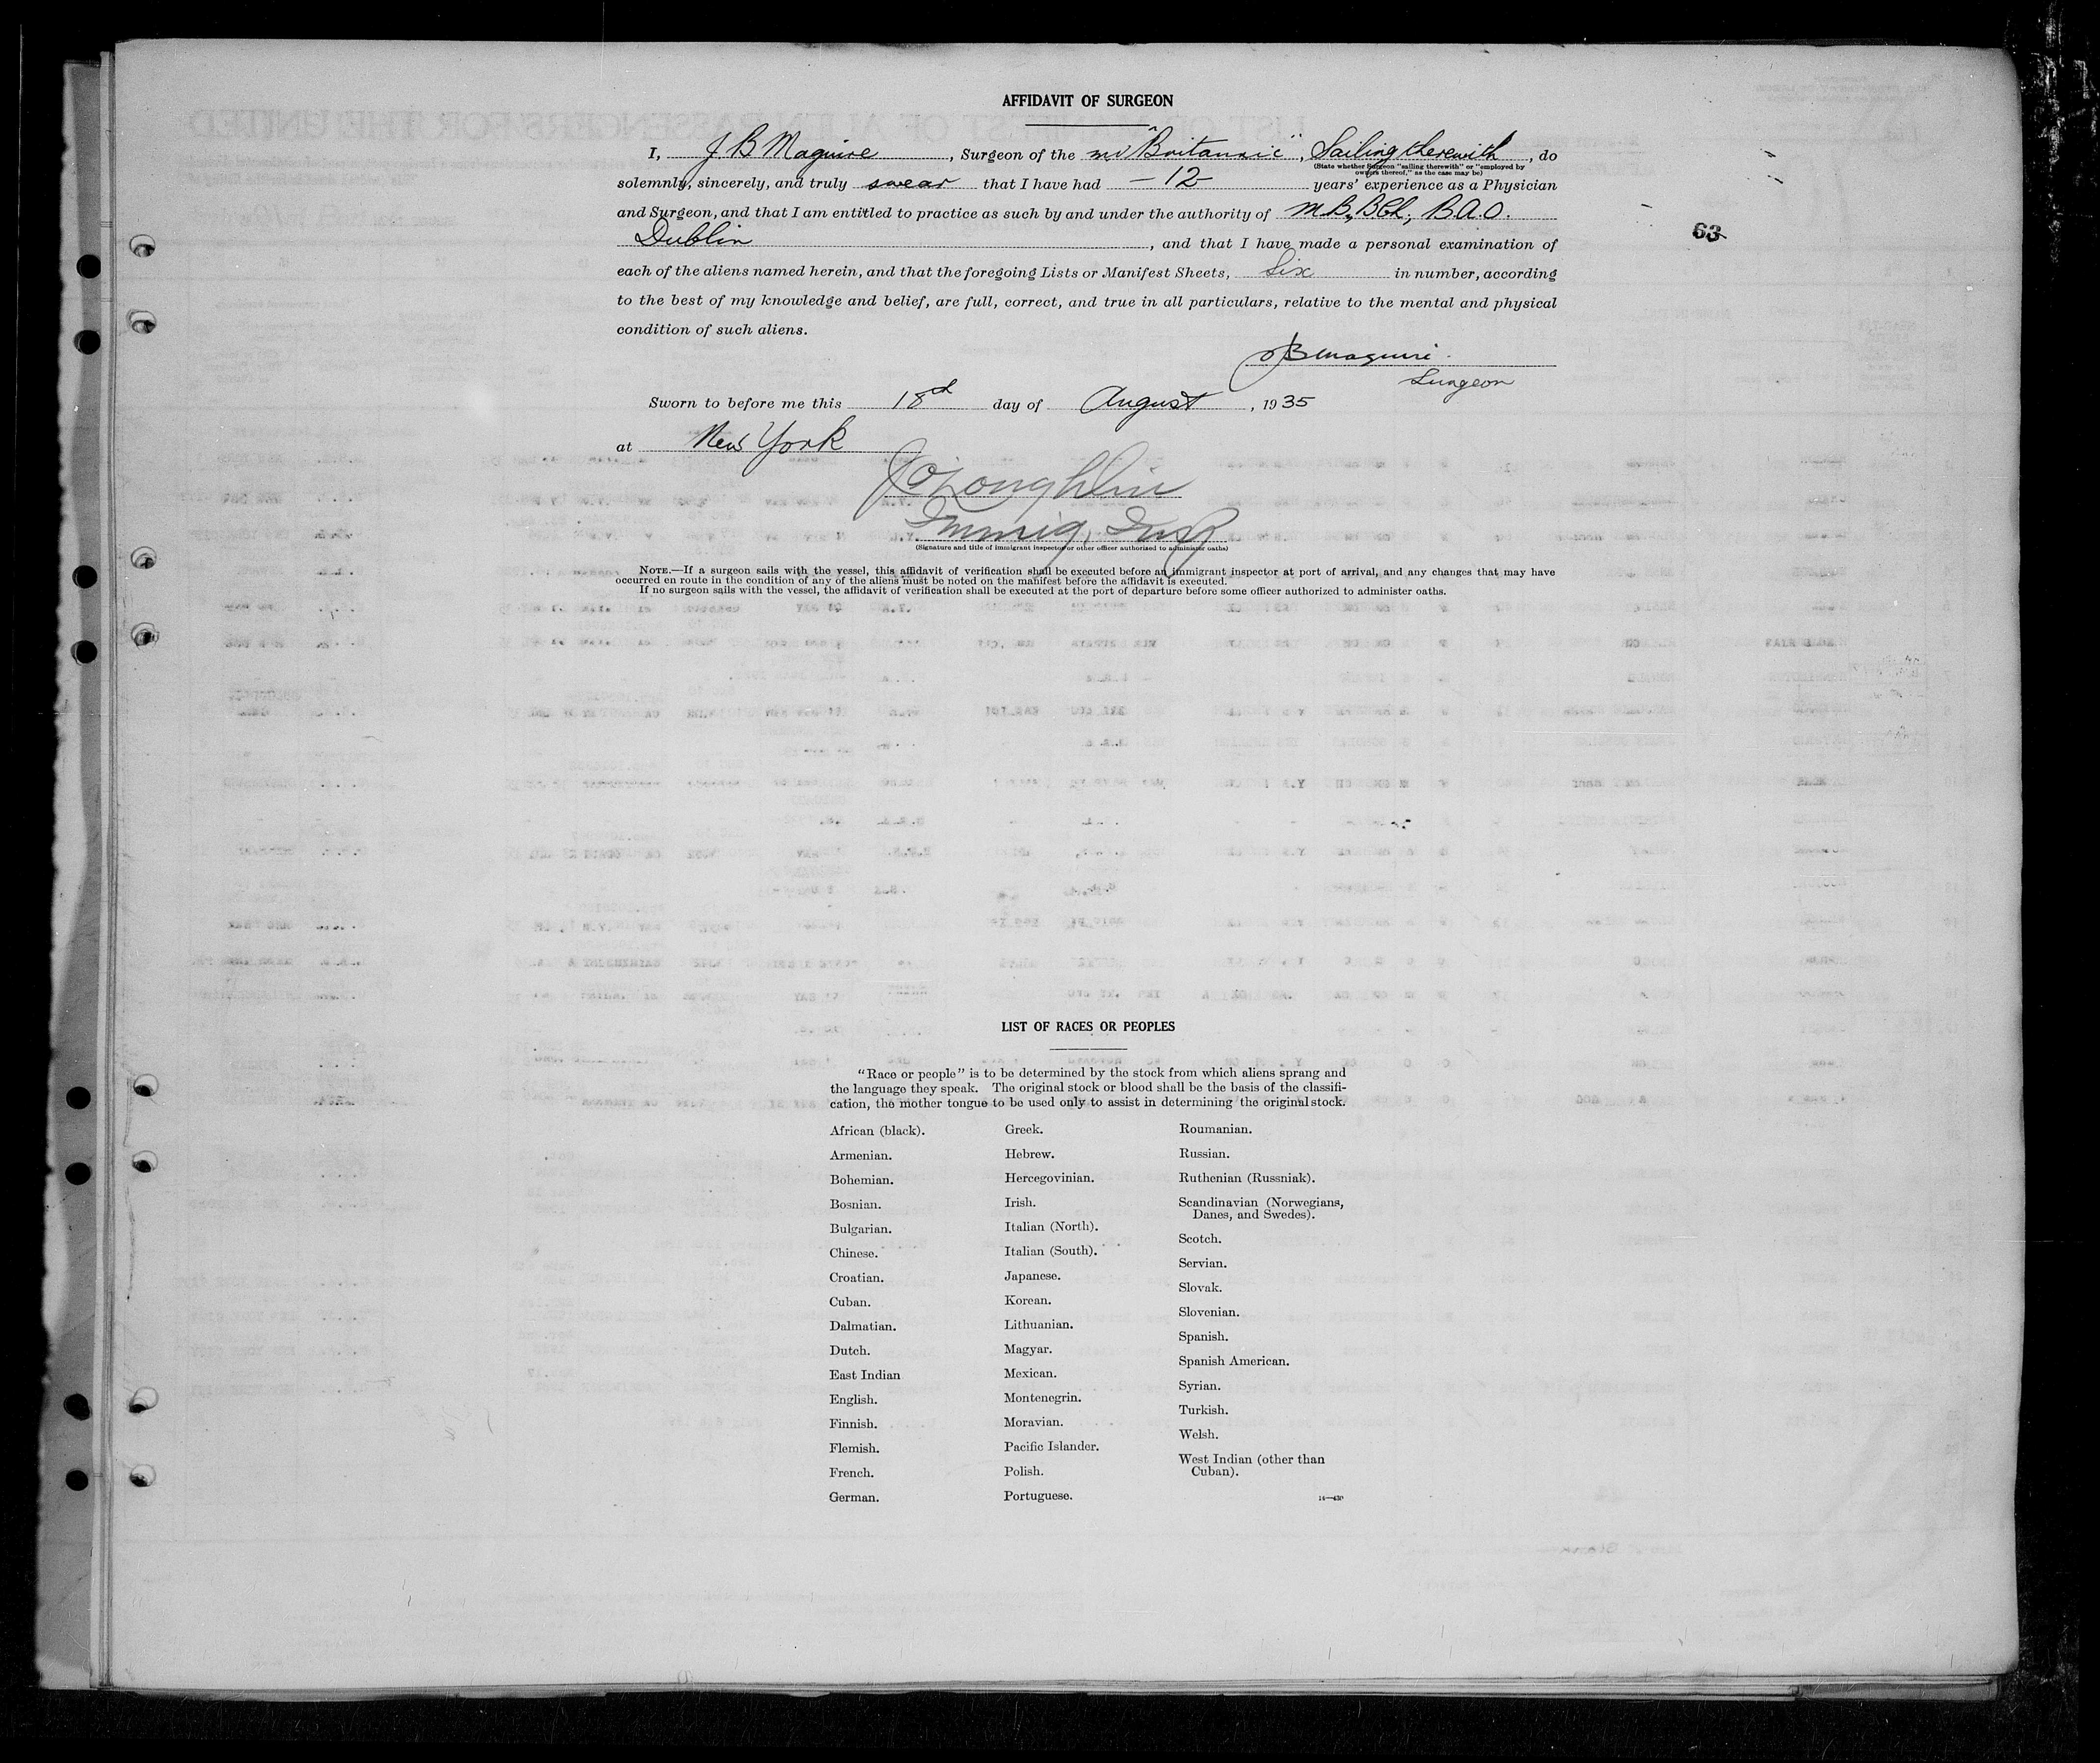 AFFIDAVIT OF SURGEON
I, J B Maguire, Surgeon of the mv "Britannic", Sailing therewith, do
(State whether Surgeon "sailing therewith" or "employed by
owners thereof," as the case may be)
solemnly, sincerely, and truly swear that I have had – 12 – years' experience as a Physician
and Surgeon, and that I am entitled to practice as such by and under the authority of M.B., B.Ch., B.A.O.
Dublin, and that I have made a personal examination of
63
each of the aliens named herein, and that the foregoing Lists or Manifest Sheets, Six in number, according
to the best of my knowledge and belief, are full, correct, and true in all particulars, relative to the mental and physical
condition of such aliens.
J B Maguire
Surgeon
Sworn to before me this 18d day of August, 1935
at New York
J O'Loughlin
Immig. Insp
(Signature and title of immigrant inspector or other officer authorized to administer oaths)
NOTE.—If a surgeon sails with the vessel, this affidavit of verification shall be executed before an immigrant inspector at port of arrival, and any changes that may have
occurred en route in the condition of any of the aliens must be noted on the manifest before the affidavit is executed.
If no surgeon sails with the vessel, the affidavit of verification shall be executed at the port of departure before some officer authorized to administer oaths.
LIST OF RACES OR PEOPLES
"Race or people" is to be determined by the stock from which aliens sprang and
the language they speak. The original stock or blood shall be the basis of the classifi-
cation, the mother tongue to be used only to assist in determining the original stock.
African (black).
Armenian.
Bohemian.
Bosnian.
Bulgarian.
Chinese.
Croatian.
Cuban.
Dalmatian.
Dutch.
East Indian
English.
Finnish.
Flemish.
French.
German.
Greek.
Hebrew.
Hercegovinian.
Irish.
Italian (North).
Italian (South).
Japanese.
Korean.
Lithuanian.
Magyar.
Mexican.
Montenegrin.
Moravian.
Pacific Islander.
Polish.
Portuguese.
Roumanian.
Russian.
Ruthenian (Russniak).
Scandinavian (Norwegians,
Danes, and Swedes).
Scotch.
Servian.
Slovak.
Slovenian.
Spanish.
Spanish American.
Syrian.
Turkish.
Welsh.
West Indian (other than
Cuban).